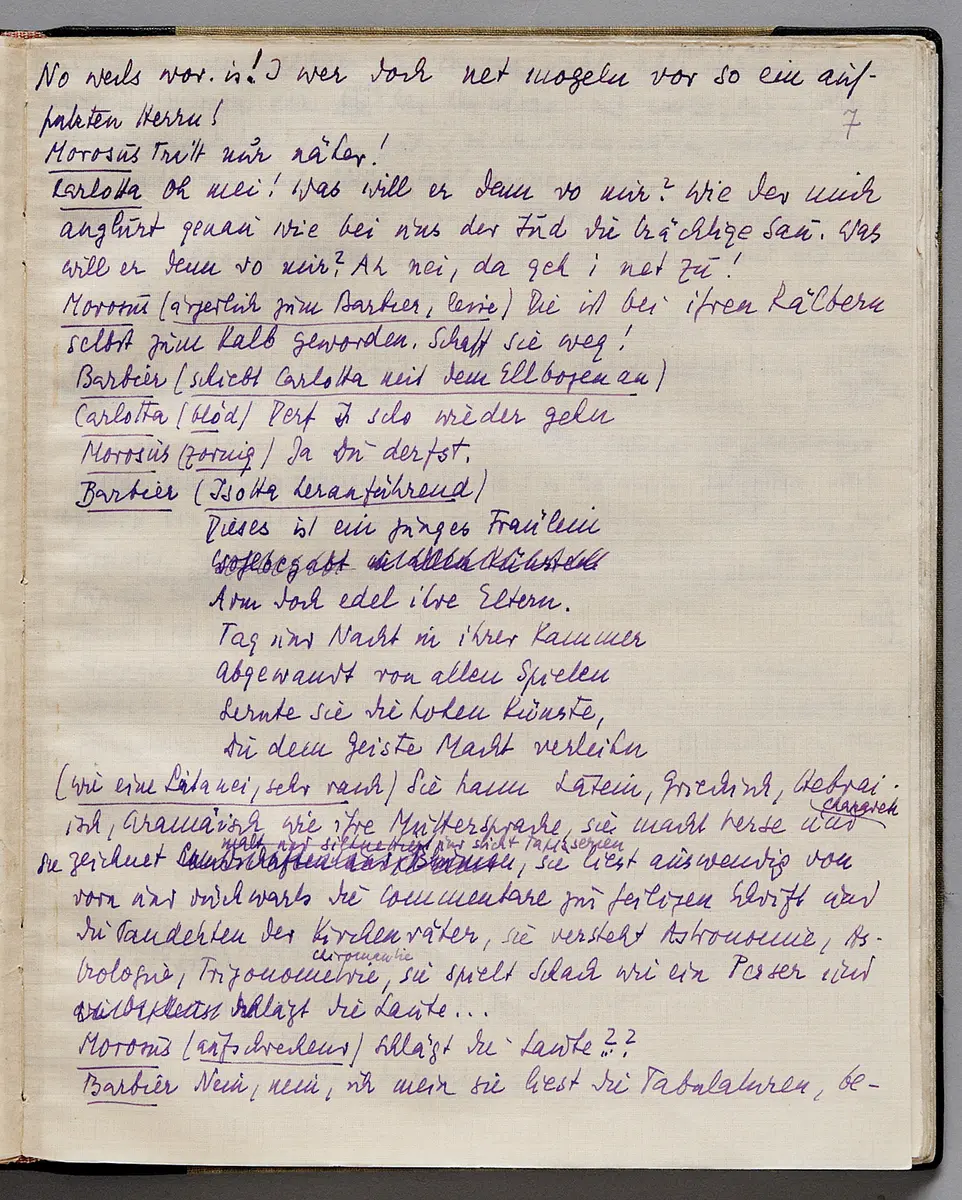 No weils wor. is! I wer doch net mogeln vor so ein auf-
putzten Herrn!
7
Morosus Tritt nur näher!
Carlotta Oh mei! Was will er denn vo mir? Wie der mich
anglurt genau wie bei uns der Jud die trächtige Sau. Was
will er denn vo mir? Ah nei, da geh i net zu!
Morosus (ärgerlich zum Barbier, leise) Die ist bei ihren Kälbern
selbst zum Kalb geworden. Schaff sie weg!
Barbier (schiebt Carlotta mit dem Ellbogen an)
Carlotta (blöd) Derf I scho wieder gehn
Morosus (zornig) Ja Du derfst.
Barbier (Isotta heranführend)
Dieses ist ein junges Fräulein
Arm doch edel ihre Eltern.
Tag und Nacht in ihrer Kammer
Abgewandt von allen Spielen
Lernte sie die hohen Künste,
Die dem Geiste Macht verleihn
(wie eine Litanei, sehr rasch) Sie kann Latein, Griechisch, Hebrai-
isch, Aramäisch wie ihre Muttersprache, sie macht Verse und
malt und und stickt Tapisserien
sie zeichnet, sie liest auswendig von
vorn und rückwärts die Commentare zur heiligen Schrift und
die Pandekten der Kirchenväter, sie versteht Astronomie, As-
chiromantie
trologie, Trigonometrie, sie spielt Schach wie ein Perser und
schlägt die Laute...
Morosus (aufschreckend) schlägt die Laute??
Barbier Nein, nein, ich mein sie liest die Tabulaturen, be-